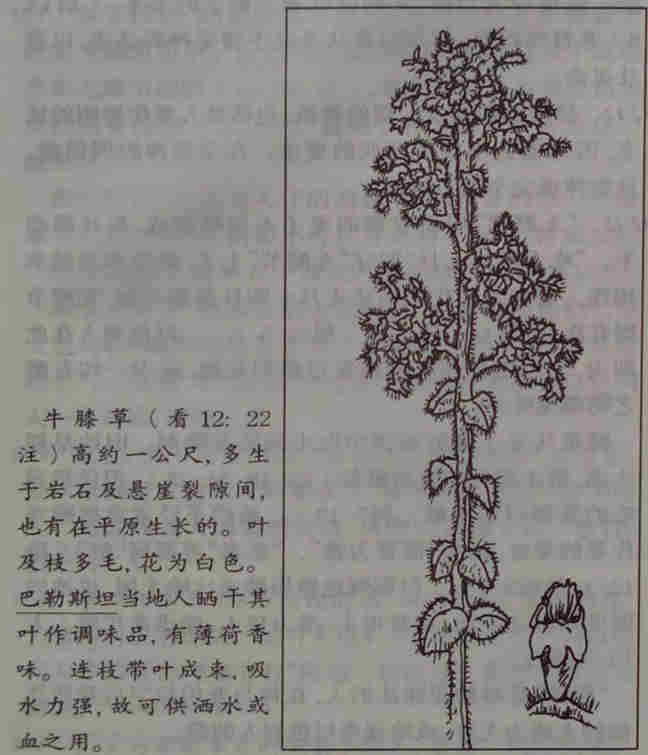 牛膝草（看12：22
注）高约一公尺，多生
于岩石及悬崖裂隙间，
也有在平原生长的。叶
及枝多毛，花为白色。
巴勒斯坦当地人晒干其
叶作调味品，有薄荷香
味。连枝带叶成束，吸
水力强，故可供洒水或
血之用。